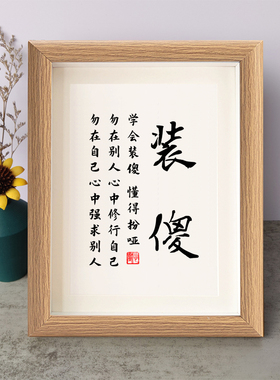 装傻
学会装傻 懂得扮哑
勿在别人心中修行自己
勿在自己心中强求别人